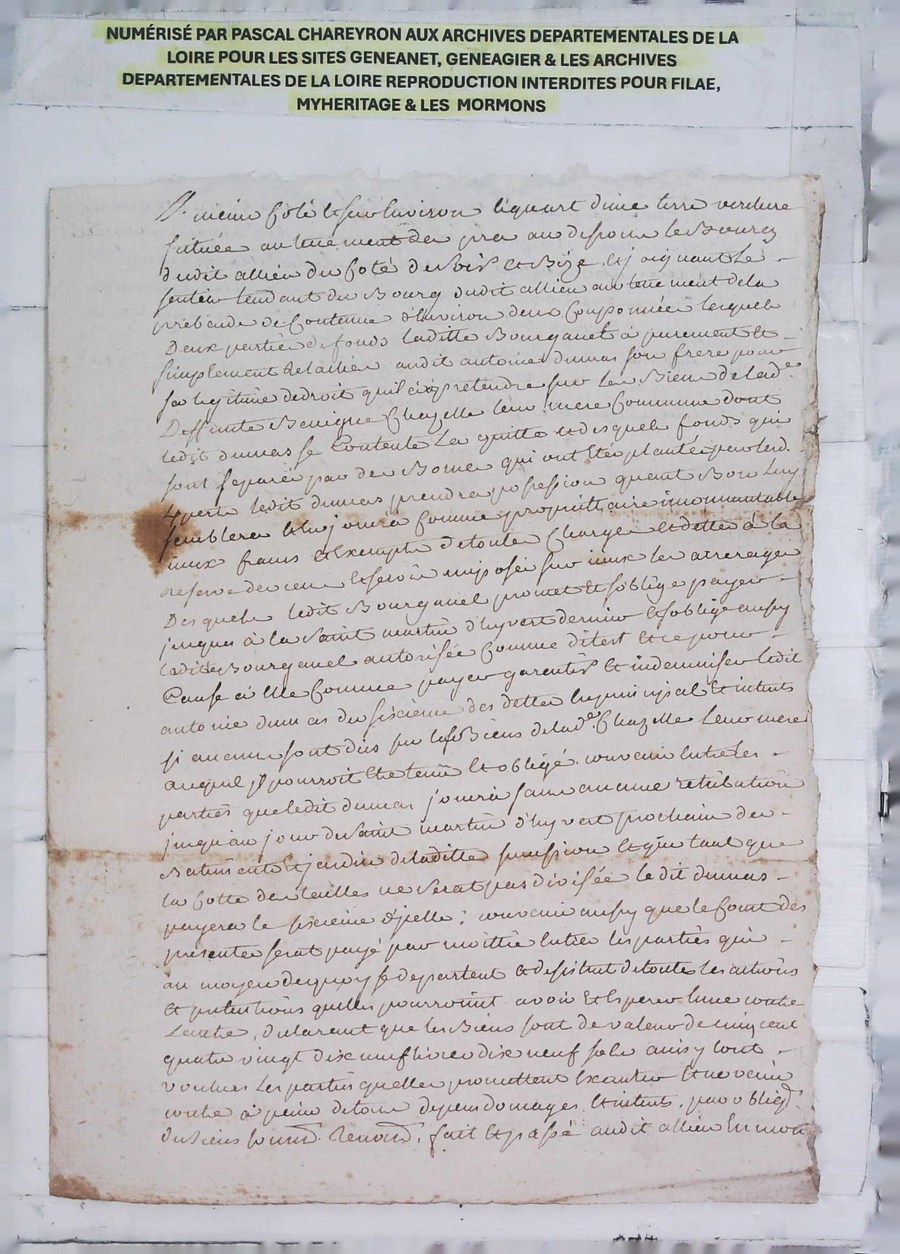 NUMÉRISÉ PAR PASCAL CHAREYRON AUX ARCHIVES DEPARTEMENTALES DE LA
LOIRE POUR LES SITES GENEANET, GENEAGIER & LES ARCHIVES
DEPARTEMENTALES DE LA LOIRE REPRODUCTION INTERDITES POUR FILAE,
MYHERITAGE & LES MORMONS
meme coté et sur lenviron le quart d'une terre verchere
scituée au tenement des pres au dessous le Bourcg
dudit allieu du coté de soir et Bize, et joignant le
sentier tendant du Bourg dudit allieu au tenement de la
prebende de Contenue d'environ deux Couponnée lesquels
Deux partie de fonds laditte Bourganel à purement et
simplement relachée audit antoine dumas son frere pour
sa legitime de droit quil a à pretendre sur les Biens de lad.e
Deffunte Benigne Chazelle leur mere Commune dont
ledit dumas se Contente la quitte et desquels fonds qui
sont separés par des Bornes qui ont étés plantée par led.
ledit dumas prendra possession quant Bon luy
semblera et en jouira comme propriettaire incommutable
iceux francs et Exempts de toutes Charges et dettes à la
reserve des cens et servis imposés sur iceux les arrerages
Desquels ledit Bourganel promet et soblige payer
jusques à la Saint martin d'hyvert dernier et soblige aussy
laditte Bourganel autorisée comme dit est et ce pour
Cause à elle comme payer garantir et indemniser ledit
antoine dumas du sixieme des dettes en principal et interets
si aucuns sont dûs sur les Biens de lad.e Chazelle leur mere
auquel il pourroit etre tenu et obligé. convenu entre les
parties que ledit dumas jouira sans aucune retribution
jusquau jour de Saint martin d'hyvert prochain des
Batiments et jardin de laditte succession et que tant que
la Cotte des tailles ne serat pas divisée le dit dumas
payera le sixieme d'jcelle; convenu aussy que le Cout des
presentes serat payé par moittié entre les parties qui
au moyen de quoy se departent et desistent de toutes les actions
et pretentions quelles pourroint avoir et Esperer lune contre
Lautre, declarent que les Biens sont de valeur de cinq cent
quatre vingt dix neuf livres dix neuf sols ainsy lont
voulues les parties quelles promettent Executer et ne venir
contre à peine de tous depens domages et interets, par obligd.
de biens soumd. Renond. fait et passé audit allieu En mon